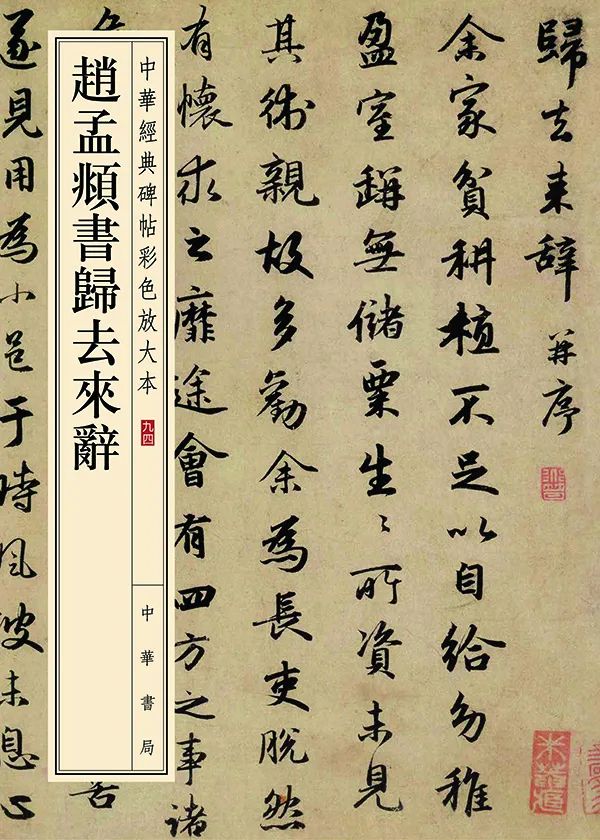 歸去来辞并序
余家貧耕植不足以自給幼稚
盈室缾無儲粟生〻所資未見
其術親故多勸余為長吏脫然
有懷求之靡途會有四方之事諸
中華經典碑帖彩色放大本 九四
中華書局
趙孟頫書歸去來辭
苦
遂見用為小邑于時風波未息心